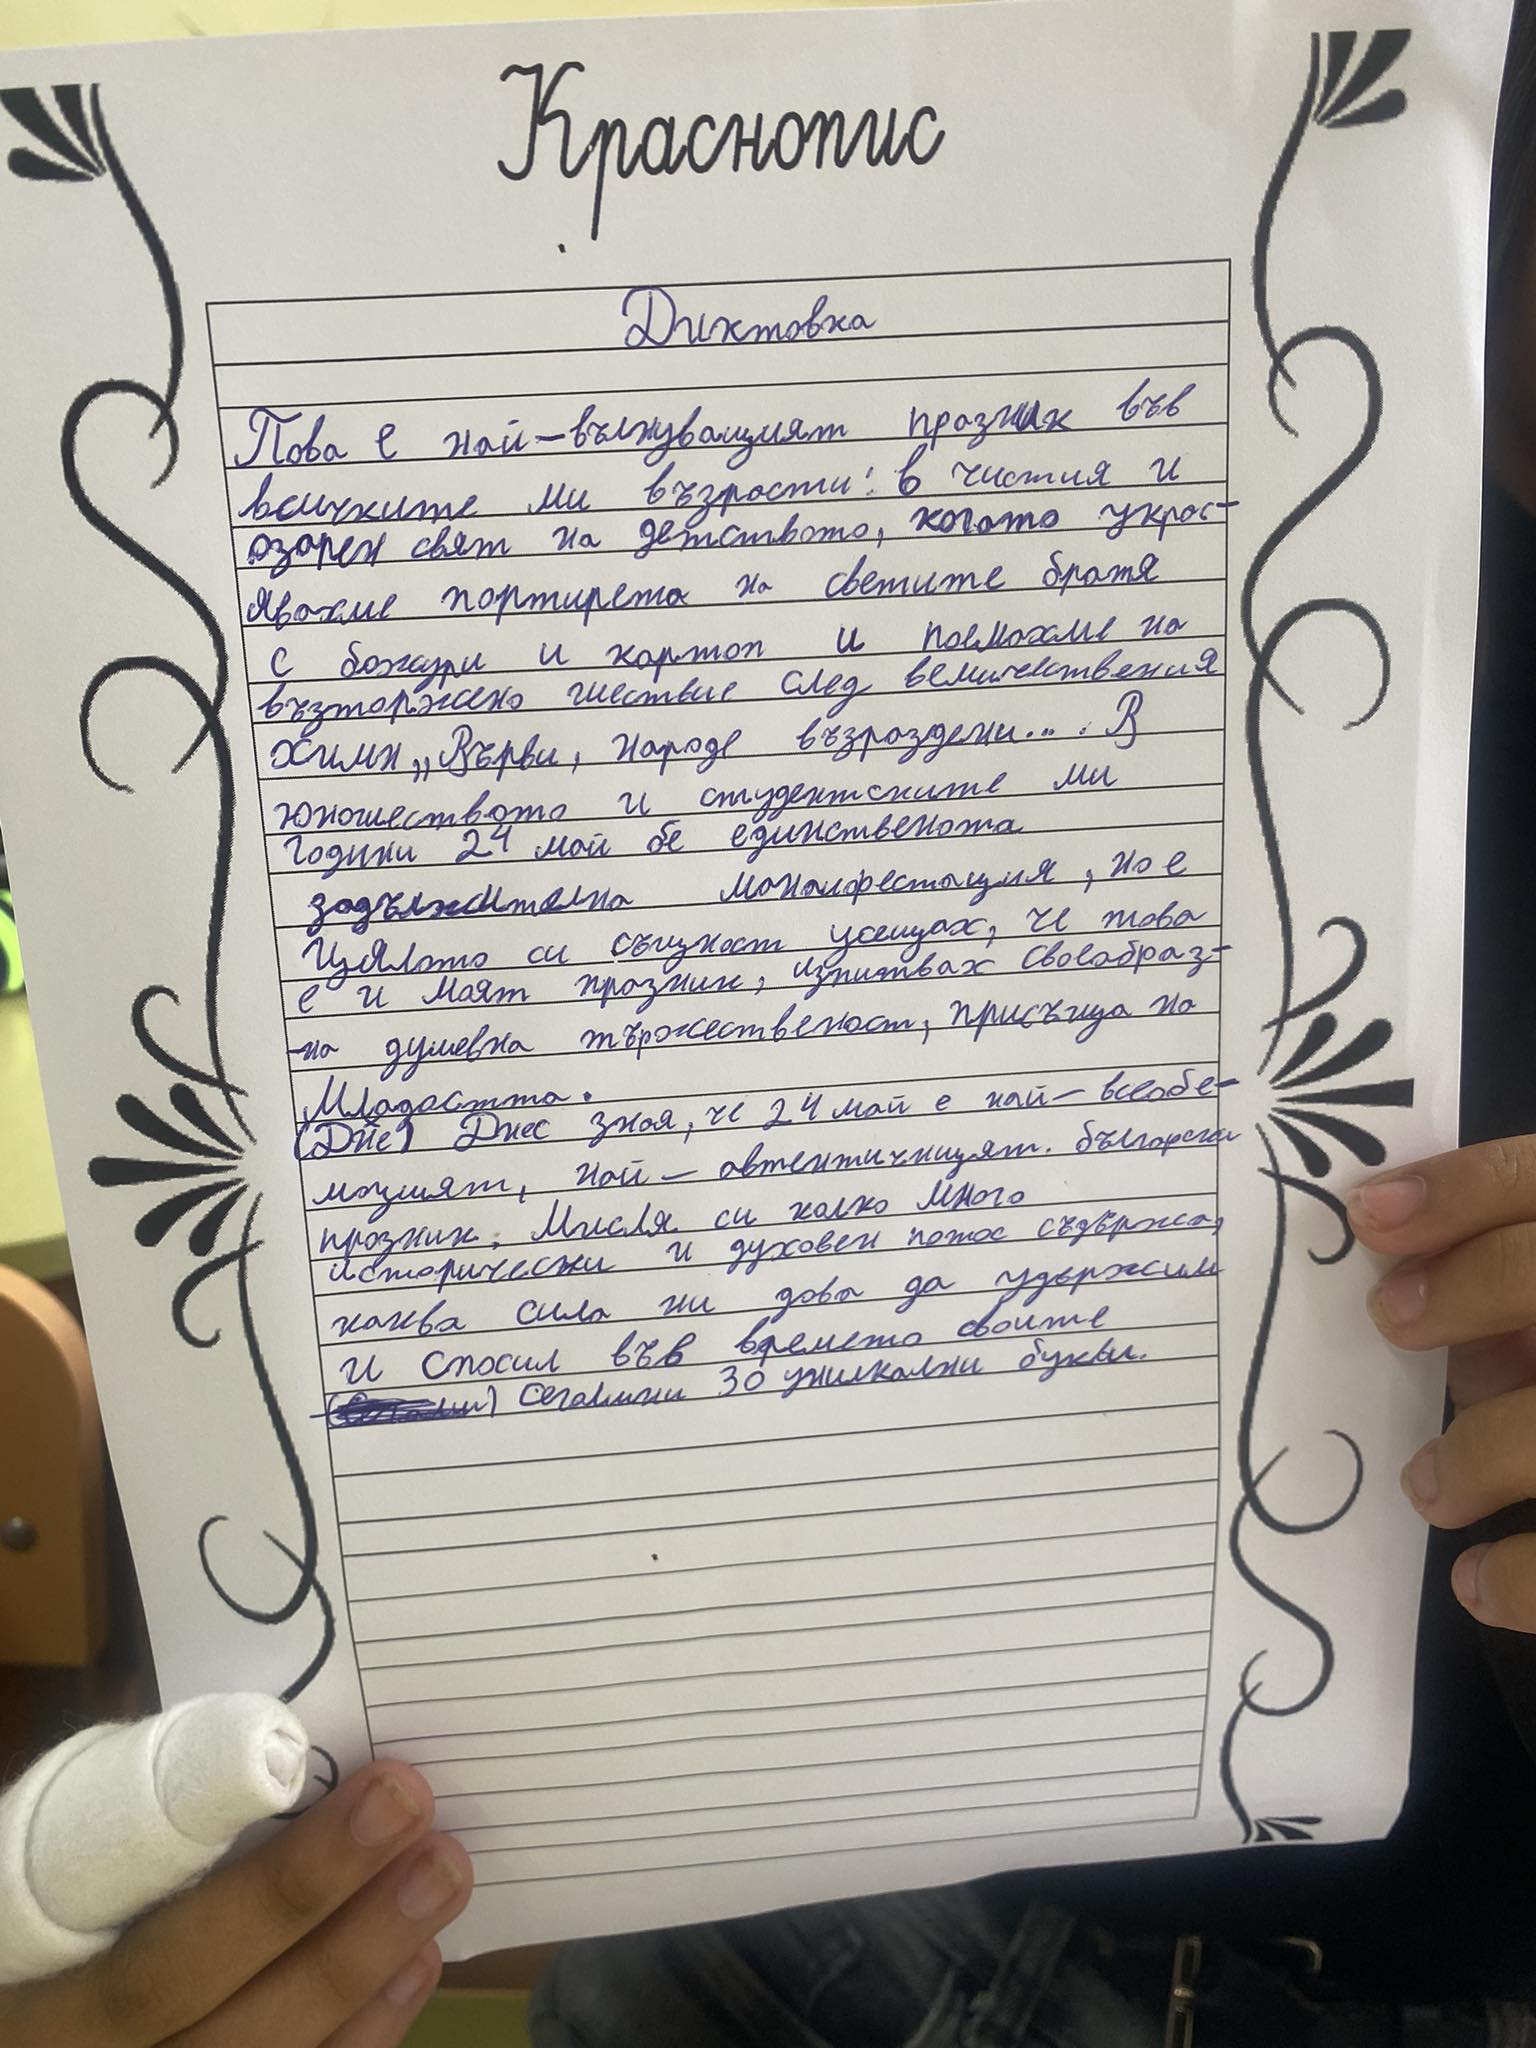 Краснопис
Диктовка
Това е най-вълнуващият празник във
всичките ми възрасти: в чистия и
озарен свят на детството, когато украс-
явахме портирета на светите братя
с божури и картоп и поемахме на
възторжено шествие след величествения
химн „Върви, народе възраздени... . В
юношеството и студентските ми
години 24 май бе единствената
задължителна манаифестация, но е
цялато си същност усещах, че това
е и моят празник, изпитвах своеобраз-
на душевна тържественост, присъща на
младостта.
(Дне) Днес зная, че 24 май е най-всеобе-
мащият, най-автентичницят. български
празник. Мисля си колко много
исторически и духовен патос съдържа,
каква сила ни дава да удържим
и спосил във времето своите
сегашни 30 уникални букви.